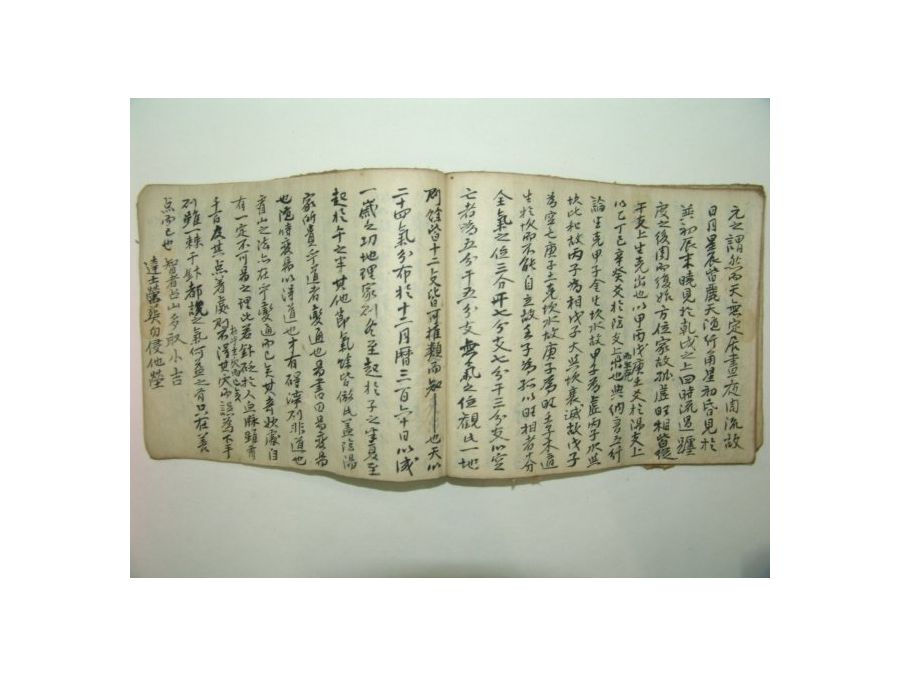 元之謂然而天無定居晝夜周流故
日月星辰皆麗天運行角星初昏見於
並初辰末曉見於乾戌之上四時流過纏
度之後周而後始方位家故孤虛旺相
干支上生克出也以甲丙戊庚壬爻於陽支上
以乙丁己辛癸爻於陰支上出也典納音五行
論生克甲子金生坎水故甲子為虛丙子水與
坎比和故丙子為相戊子火與坎衰滅故戊子
為空亡庚子土克坎水故庚子為旺壬子木道
生於坎而不能自立故壬子為孤以旺相者分
全氣之位三分干七分支七分干三分支以空
亡者為五分干五分支無氣之位觀氏一地
則餘皆十二支皆可推類而知也天以
二十四氣分布於十二月曆三百六十日以成
一歲之功地理家則冬至起於子之半夏至
起於午之半其他節氣皆倣氏蓋陰陽
家所貴乎道者變通也易書曰易变易
也隨時变易以得道也才有碍滯則非道也
有山之法亦在乎變通而已矣其奇妙處自
有一定不可易之理比若針砭於人血脉頭有
千百度其点着處則不得其穴而誤
則雖一藥千針都說之氣何益之有只在善
点而已也 智者占山多取小吉
達士營葬勿侵他塋